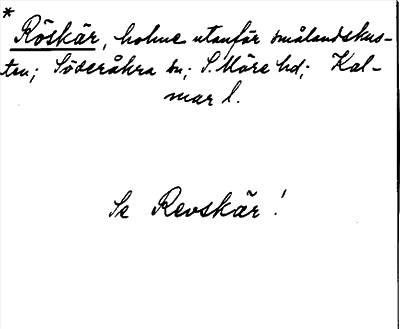 *
Röskär, holme utanför smålandskus-
ten; Söderåkra sn; S. Möre hd; Kal-
mar l.
Se Revskär!